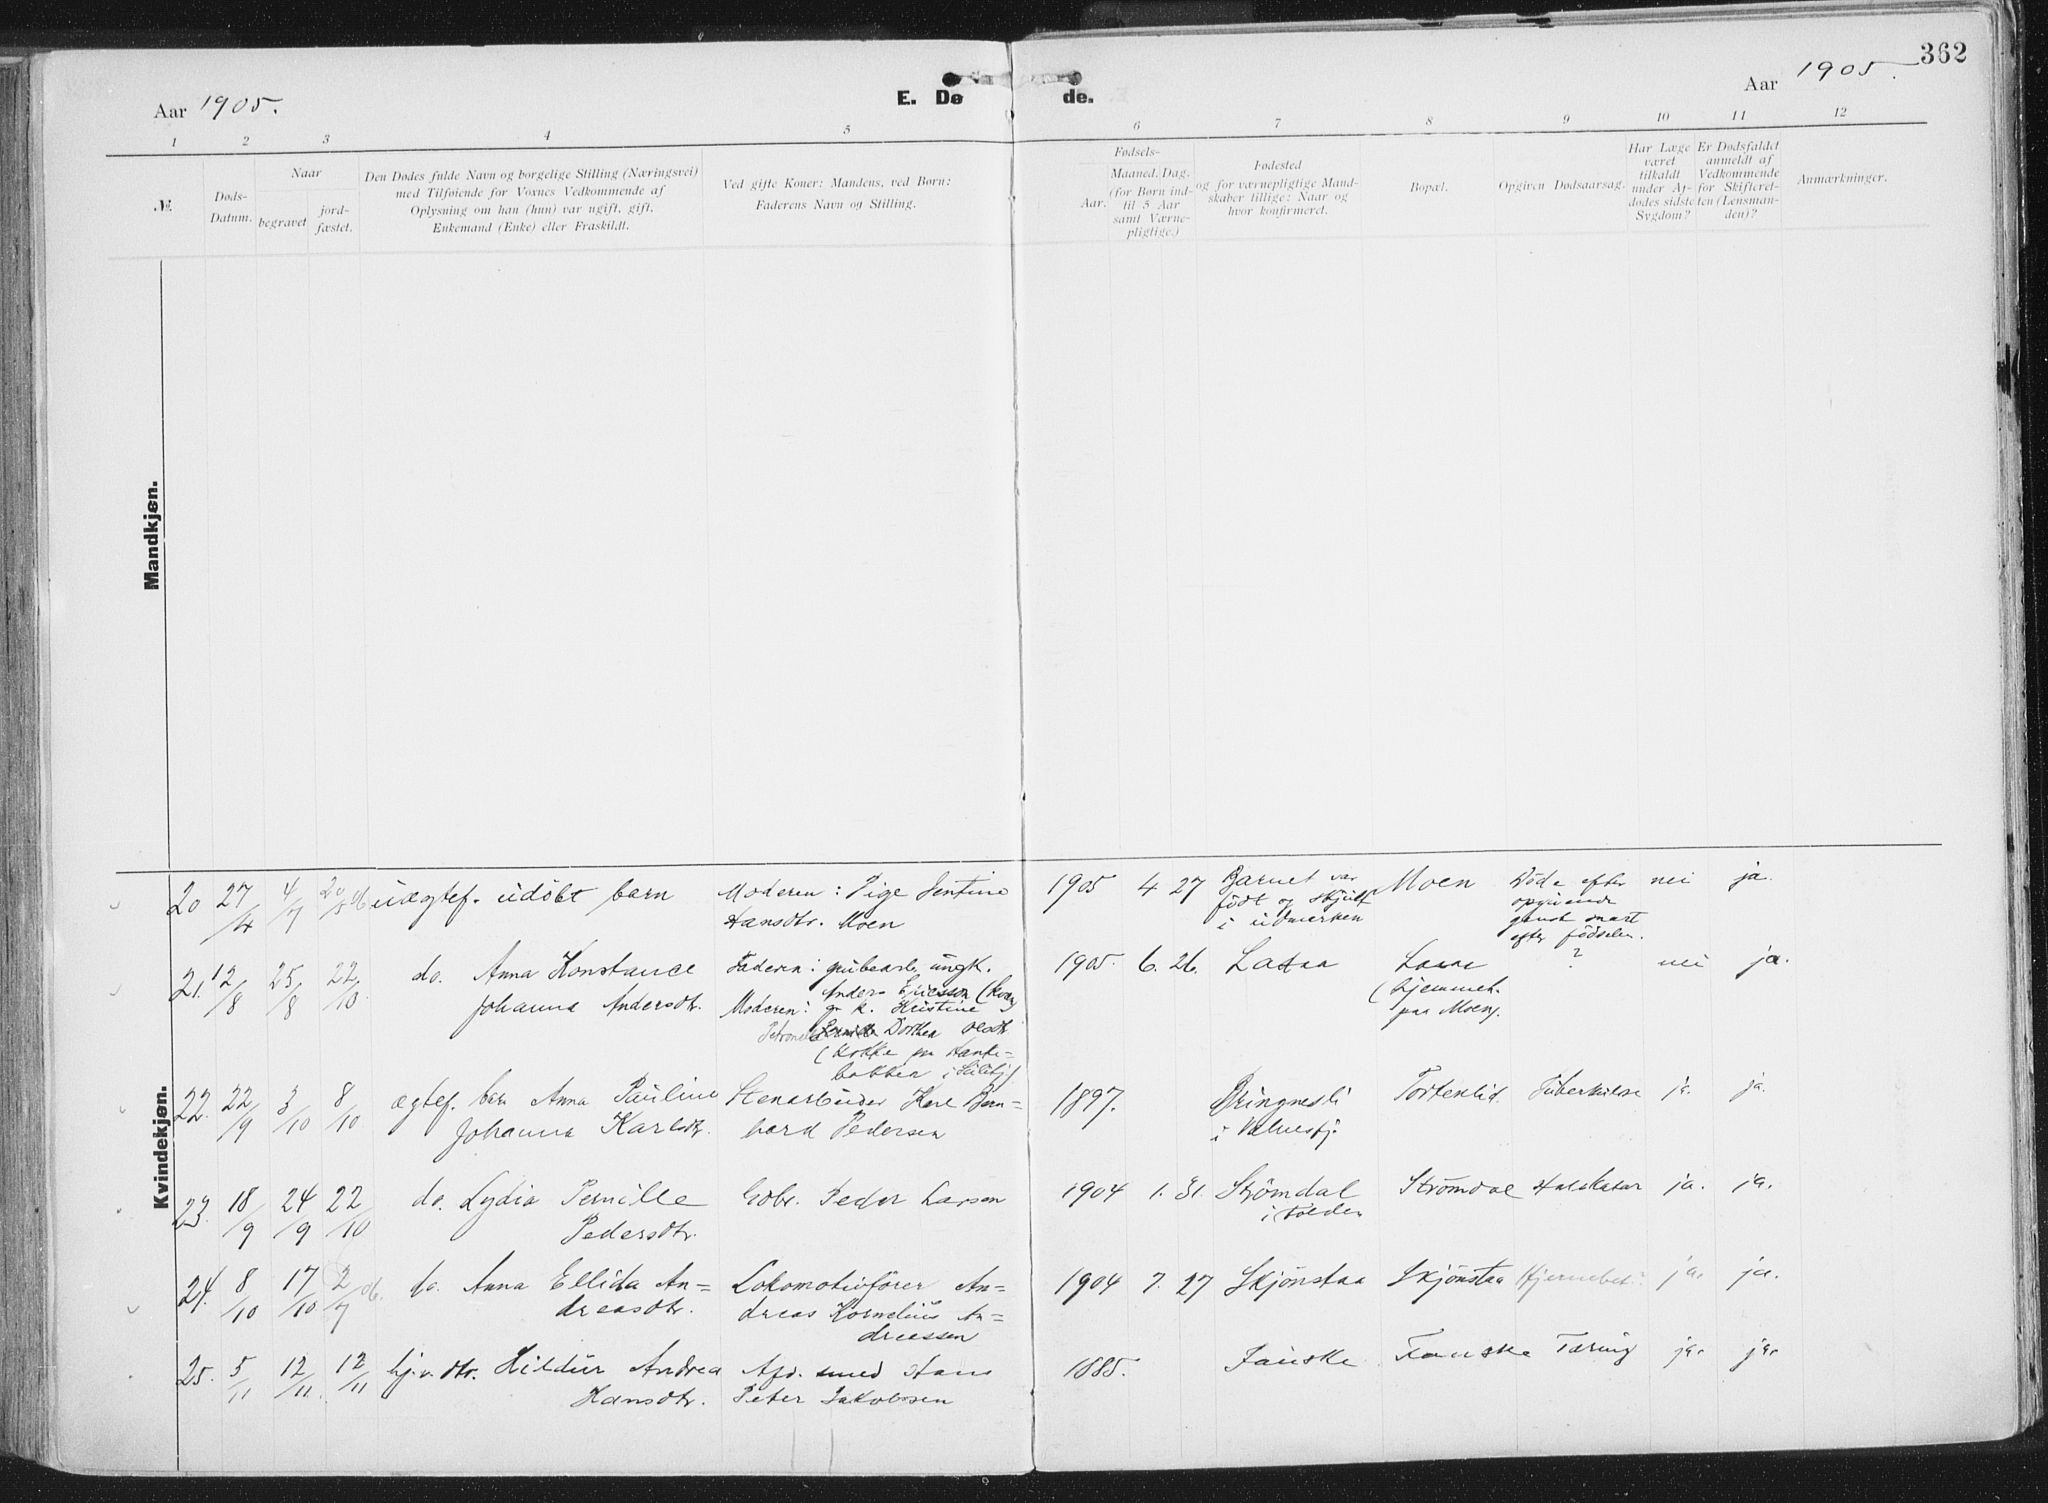 362
Aar 1905.
E. Dø de.
Aar 1905.
1 2 3 4 5 6 7 8 9 10 11 12
№.
Døds-
Datum.
Naar
begravet
jord-
fæstet.
Den Dødes fulde Navn og borgelige Stilling (Næringsvei)
med Tilføiende for Voxnes Vedkommende af
Oplysning om han (hun) var ugift, gift,
Enkemand (Enke) eller Fraskildt.
Ved gifte Koner: Mandens, ved Børn:
Faderens Navn og Stilling.
Fødsels-
Aar.
Maaned. Dag.
(for Børn ind-
til 5 Aar
samt Værne-
pligtige.)
Fødested
og for værnepligtige Mand-
skaber tillige: Naar og
hvor konfirmeret.
Bopæl.
Opgiven Dødsaarsag.
Har Læge
været
tilkaldt
under Af-
dødes sidste
Sygdom?
Er Dødsfaldet
anmeldt af
Vedkommende
for Skifteret-
ten (Lensman-
den)?
Anmærkninger.
Mandkjøn.
Kvindekjøn.
20 27/4 4/7 20/5 06 uægtef. udöbt barn
Moderen: Pige Jentine
Hansdtr. Moen
1905 4 27
Barnet var
födt og skjult
i udmarken
Moen
Döde efter
opgivende
ganske snart
efter födselen.
nei ja.
21. 12/8 25/8 22/10 do. Anna Konstance
Johanna Andersdtr.
Faderen: grubearb. ungk.
Anders Ericsson (kvæn)
Moderen: gr k. Kristine
Petronelle Dorthea
(kokke paa Hanke-
bakken i Sulitj.)
1905. 6. 26. Lasaa
(hjemmeh.
paa Moen).
? nei ja.
22. 22/9 3/10 8/10 ægtef. barn Anna Pauline
Johanna Karlsdtr.
Stenarbeider Karl Bern-
hard Pedersen
1897.
Øringnesli
i Valnesfj.
Tortenlid. Tuberkulose ja. ja.
23. 18/9 24/9 22/10 do. Lydia Pernille
Pedersdtr.
Gbr. Peder Larsen
1904 1. 31. Strömdal
i Solden
Strömdal Halskatar ja. ja.
24. 8/10 17/10 2/7 06. do. Anna Ellida An-
dreasdtr.
Lokomotivförer An-
dreas Kornelius An-
dreassen
1904 7. 27 Skjönstaa Skjönstaa Hjernebet. ja. ja.
25. 5/11 12/11 12/11 hj.v. dtr. Hildur Andrea
Hansdtr.
Afd. smed Hans
Peter Jakobssen
1885. Fauske Fauske Tæring ja. ja.